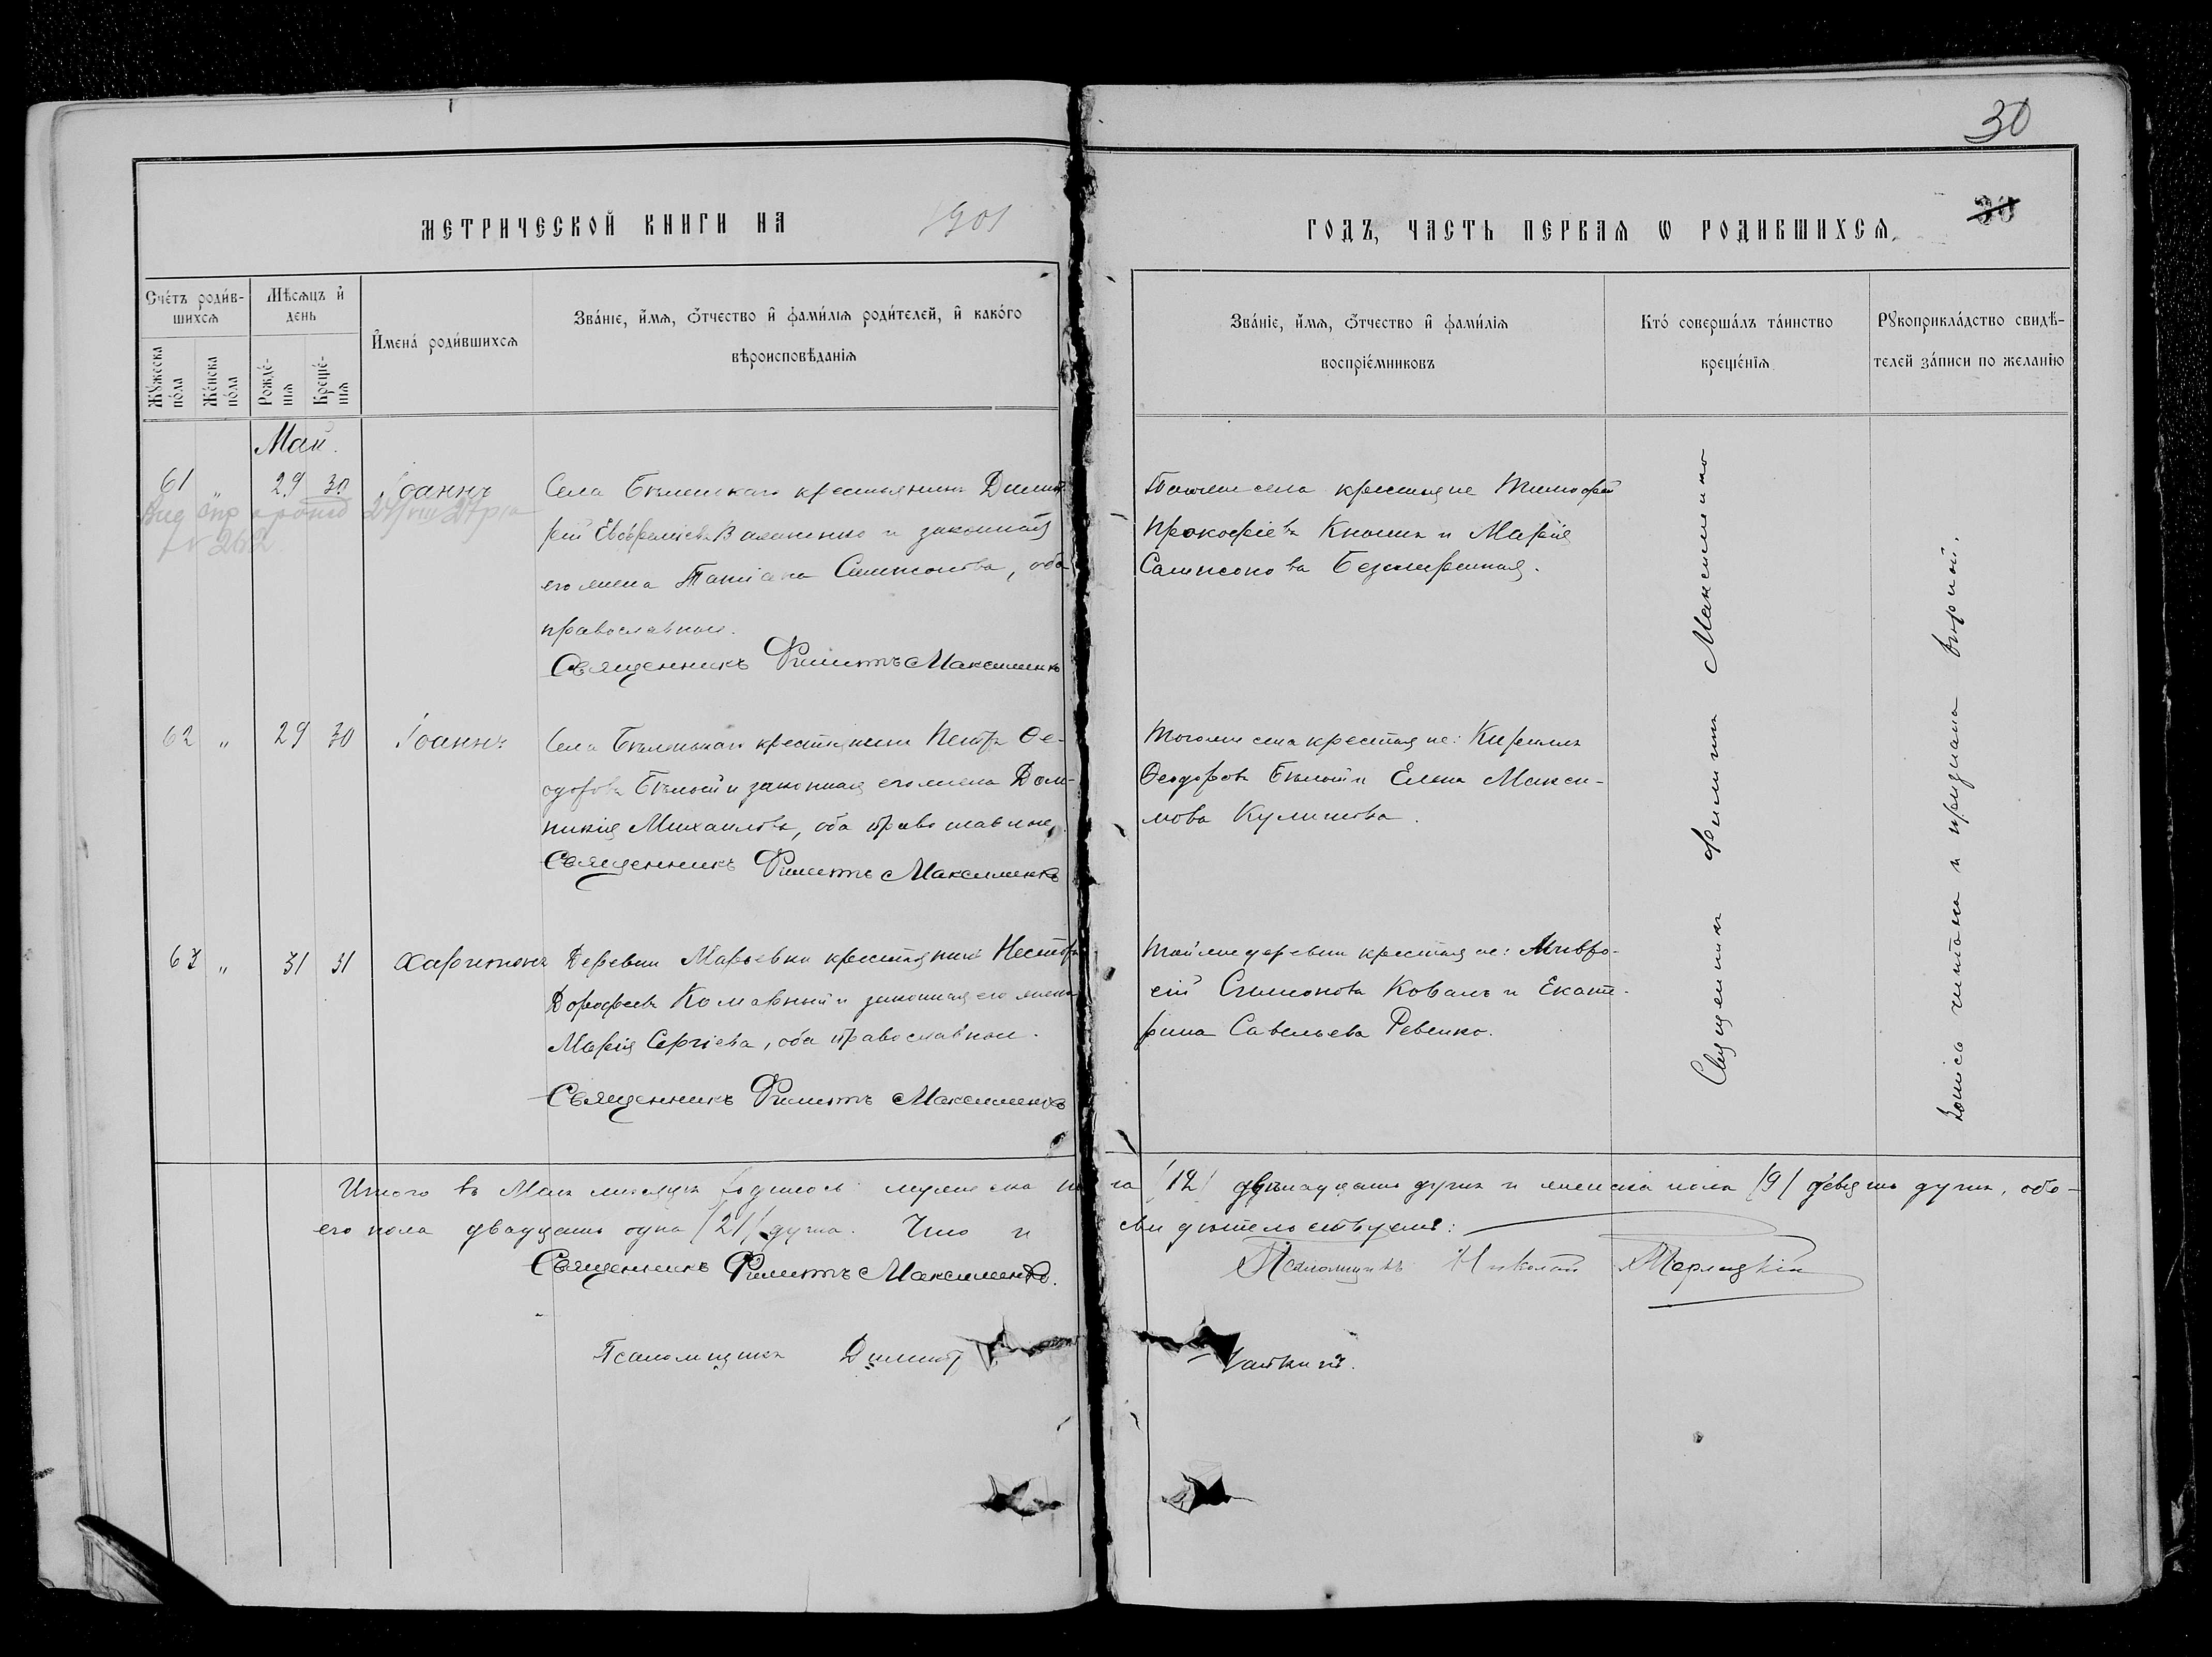 30
МЕТРИЧЕСКОЙ КНИГИ НА 1901
ГОДЪ, ЧАСТЬ ПЕРВАѦ Ѡ РОДИВШИХСѦ.
30
Сче́тъ роди́в-
шихсѧ
Мѣ́сѧцъ и҆
день
Мꙋ́жеска
по́ла
Же́нска
по́ла
Рожде́-
нїѧ
Креще́-
нїѧ
И҆мена́ роди́вшихсѧ
Зва́нїе, и҆́мѧ, ѻ҆́тчество и҆ фами́лїѧ роди́телей, и҆ како́гѡ
вѣроисповѣ́данїѧ
Зва́нїе, и҆́мѧ, ѻ҆́тчество и҆ фами́лїѧ
воспрїе́мниковъ
Кто̀ соверша́лъ та́инство
креще́нїѧ
Рꙋкоприкла́дство свидѣ́-
телей за́писи по жела́нїю
Май.
61 " 29 30 Іоаннъ
№ 262
Села Бѣленькаго крестьянинъ Димит-
рій и законная
его жена Татіана Симонова, оба
православные.
Священникъ Филиппъ Максименко
Тогоже села крестьяне Тимофей
Прокофіевъ и Марія
Сампсонова
62 " 29 30 Іоаннъ
Села Бѣленькаго крестьянинъ Петръ Ѳе-
одоровъ Бѣлый и законная его жена Дом-
никія Михаилова, оба православные.
Священникъ Филиппъ Максименко
Тогоже села крестьяне: Кириллъ
Ѳеодоровъ Бѣлый и Елена Макси-
мова Кулишова.
63 " 31 31 Харитонъ
Деревни Марьевки крестьянинъ Несторъ
Дорофеевъ Комарный и законная его жена
Марія Сергіева, оба православные.
Священникъ Филиппъ Максименко
Тойже деревни крестьяне: Амвро-
сій Симоновъ Коваль и Екате-
рина Савельева Ревенко.
Священникъ Филиппъ Максименко
Итого въ Маѣ мѣсяцѣ родилось мужеска пола /12/ двѣнадцать душъ и женска пола /9/ девять душъ, обо-
его пола двадцать одна /21/ душа. Что и свидѣтельствуемъ:
Священникъ Филиппъ Максименко.
Псаломщикъ Николай
Псаломщикъ Димит